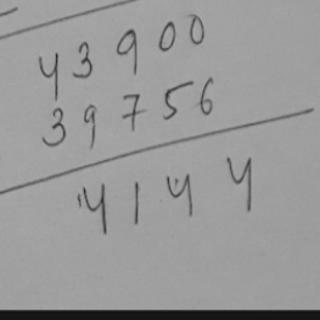 43900
39756
4144